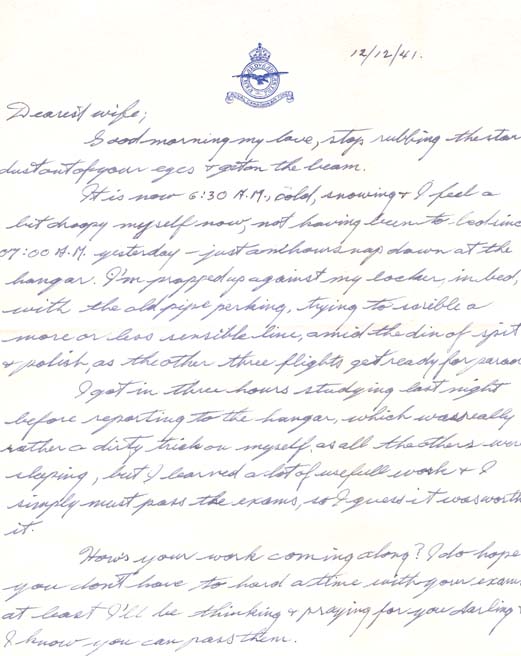 12/12/41.
Dearest wife,
Good morning my love, stop rubbing the star
dust out of your eyes & get on the beam.
It is now 6:30 A.M., cold, snowing & I feel a
bit droopy myself now, not having been to bed since
07:00 A.M. yesterday - just an hours nap down at the
hangar. I'm propped up against my locker, in bed,
with the old pipe perking, trying to scrible a
more or less sensible line, amid the din of spit
& polish, as the other three flights get ready for parade
I got in three hours studying last night
before reporting to the hangar, which was really
rather a dirty trick on myself, as all the others were
sleping, but I learned a lot of usefull work & I
simply must pass the exams, so I guess it was worth
it.
How's your work coming along? I do hope
you don't have to hard a time with your exams
at least I'll be thinking & praying for you darling &
I know you can pass them.